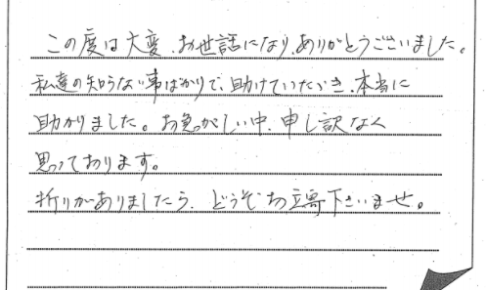 この度は大変、お世話になり、ありがとうございました。
私達の知らない事ばかりで、助けていただき、本当に
助かりました。お急がしい中、申し訳なく
思っております。
折りがありましたら、どうぞお立寄下さいませ。